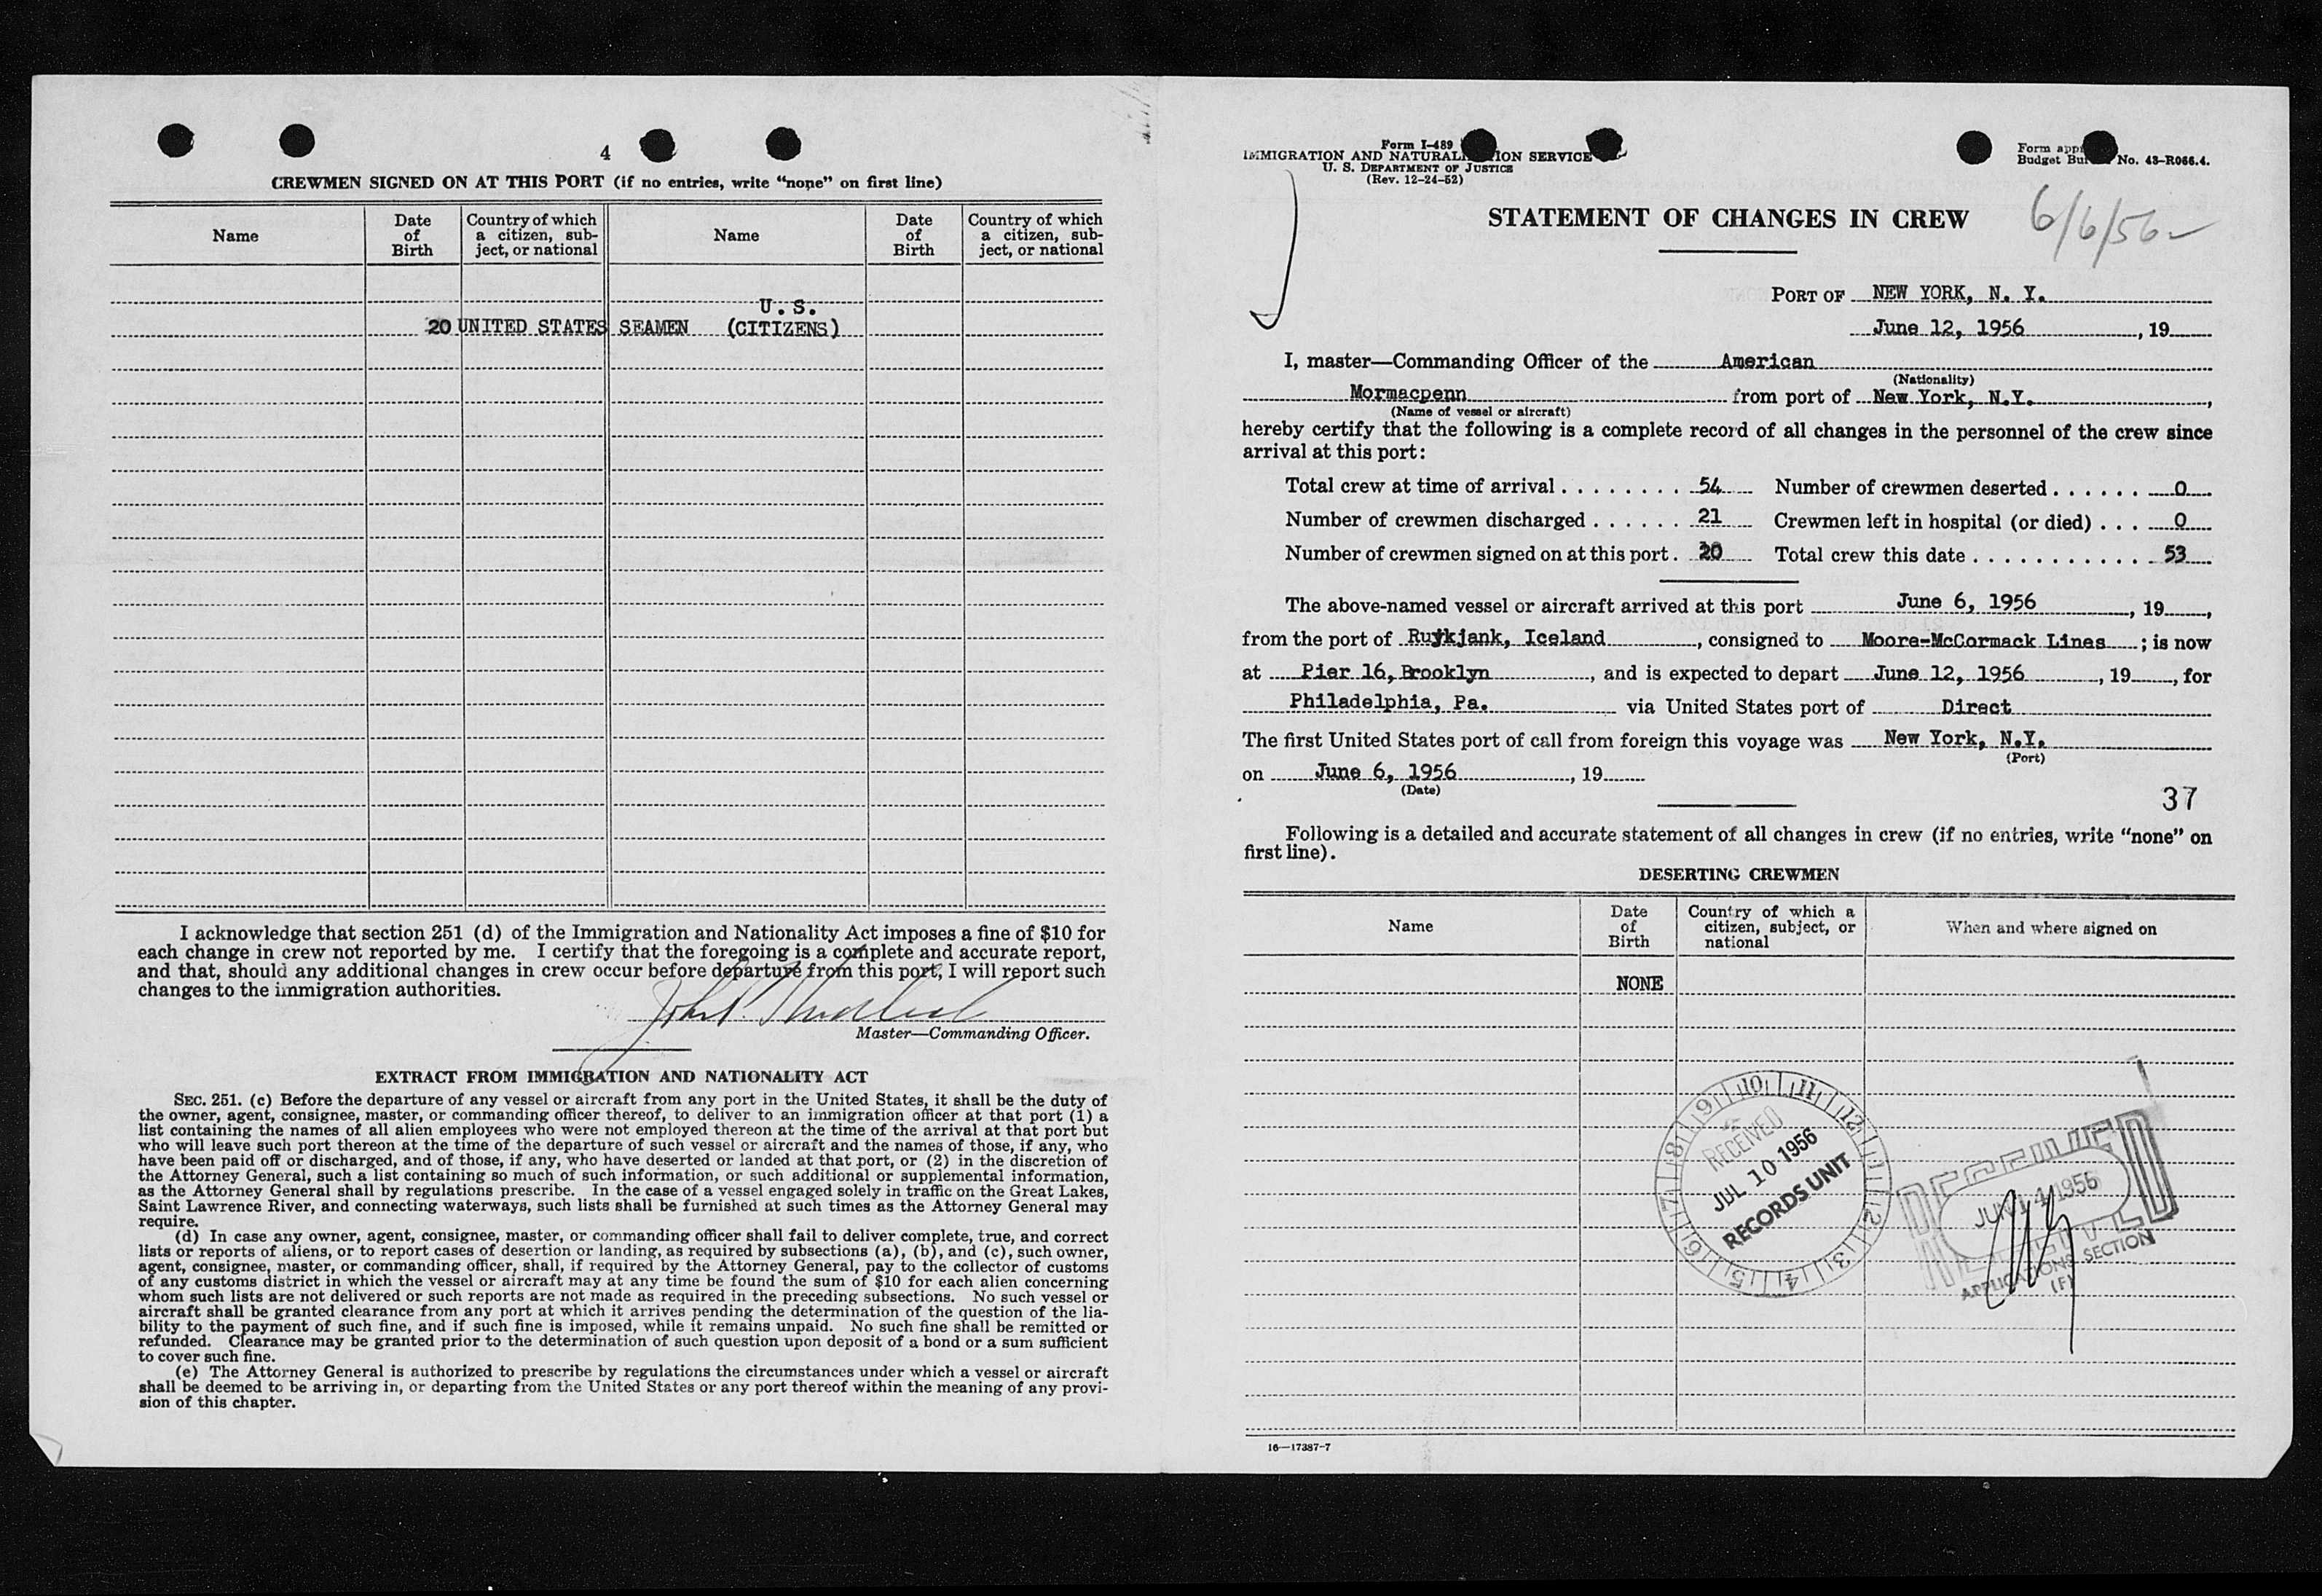 4
CREWMEN SIGNED ON AT THIS PORT (if no entries, write "none" on first line)
Name
Date of Birth
Country of which a citizen, subject, or national
Name
Date of Birth
Country of which a citizen, subject, or national
U.S.
20 UNITED STATES SEAMEN (CITIZENS)
I acknowledge that section 251 (d) of the Immigration and Nationality Act imposes a fine of $10 for
each change in crew not reported by me. I certify that the foregoing is a complete and accurate report,
and that, should any additional changes in crew occur before departure from this port, I will report such
changes to the immigration authorities.
Master—Commanding Officer.
EXTRACT FROM IMMIGRATION AND NATIONALITY ACT
SEC. 251. (c) Before the departure of any vessel or aircraft from any port in the United States, it shall be the duty of
the owner, agent, consignee, master, or commanding officer thereof, to deliver to an immigration officer at that port (1) a
list containing the names of all alien employees who were not employed thereon at the time of the arrival at that port but
who will leave such port thereon at the time of the departure of such vessel or aircraft and the names of those, if any, who
have been paid off or discharged, and of those, if any, who have deserted or landed at that port, or (2) in the discretion of
the Attorney General, such a list containing so much of such information, or such additional or supplemental information,
as the Attorney General shall by regulations prescribe. In the case of a vessel engaged solely in traffic on the Great Lakes,
Saint Lawrence River, and connecting waterways, such lists shall be furnished at such times as the Attorney General may
require.
(d) In case any owner, agent, consignee, master, or commanding officer shall fail to deliver complete, true, and correct
lists or reports of aliens, or to report cases of desertion or landing, as required by subsections (a), (b), and (c), such owner,
agent, consignee, master, or commanding officer, shall, if required by the Attorney General, pay to the collector of customs
of any customs district in which the vessel or aircraft may at any time be found the sum of $10 for each alien concerning
whom such lists are not delivered or such reports are not made as required in the preceding subsections. No such vessel or
aircraft shall be granted clearance from any port at which it arrives pending the determination of the question of the lia-
bility to the payment of such fine, and if such fine is imposed, while it remains unpaid. No such fine shall be remitted or
refunded. Clearance may be granted prior to the determination of such question upon deposit of a bond or a sum sufficient
to cover such fine.
(e) The Attorney General is authorized to prescribe by regulations the circumstances under which a vessel or aircraft
shall be deemed to be arriving in, or departing from the United States or any port thereof within the meaning of any provi-
sion of this chapter.
Form I-489
IMMIGRATION AND NATURALIZATION SERVICE
U. S. DEPARTMENT OF JUSTICE
(Rev. 12-24-52)
Form app
Budget Bu No. 43-R066.4.
STATEMENT OF CHANGES IN CREW
6/6/56
PORT OF NEW YORK, N. Y.
June 12, 1956, 19
I, master—Commanding Officer of the American
(Nationality)
Mormacpenn from port of New York, N.Y.,
(Name of vessel or aircraft)
hereby certify that the following is a complete record of all changes in the personnel of the crew since
arrival at this port:
Total crew at time of arrival . . . . . . . . 54 Number of crewmen deserted . . . . . . 0
Number of crewmen discharged . . . . . . 21 Crewmen left in hospital (or died) . . . 0
Number of crewmen signed on at this port . 20 Total crew this date . . . . . . . . . . . . 53
The above-named vessel or aircraft arrived at this port June 6, 1956, 19,
from the port of Ruykjank, Iceland, consigned to Moore-McCormack Lines; is now
at Pier 16, Brooklyn, and is expected to depart June 12, 1956, 19, for
Philadelphia, Pa. via United States port of Direct
The first United States port of call from foreign this voyage was New York, N.Y.
(Port)
on June 6, 1956, 19
(Date)
37
Following is a detailed and accurate statement of all changes in crew (if no entries, write "none" on
first line).
DESERTING CREWMEN
Name
Date of Birth
Country of which a citizen, subject, or national
When and where signed on
NONE
9 10 11 12 1 2 3 4 5 6 7 8
RECEIVED
JUL 10 1956
RECORDS UNIT
RECEIVED
JUN 14 1956
APPLICATIONS SECTION
(F)
16—17387-7